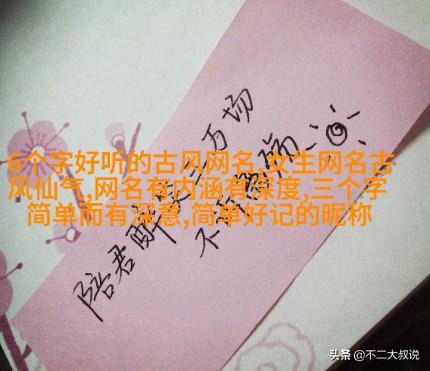 6个字好听的古风网名,女生网名古
风仙气,网名有内涵有深度,三个字
简单而有深意,简单好记的昵称
陪君醉笑三万场
不
头条 @不二大叔说